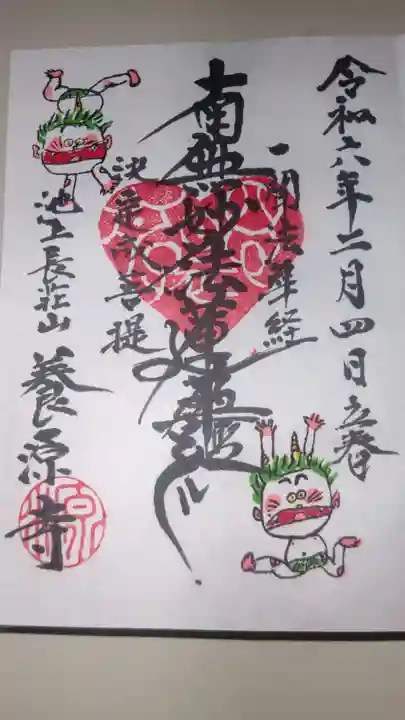 令和六年二月四日立春
一聞法華経
南無妙法蓮華経
決定成菩提
池上長荘山
養源寺